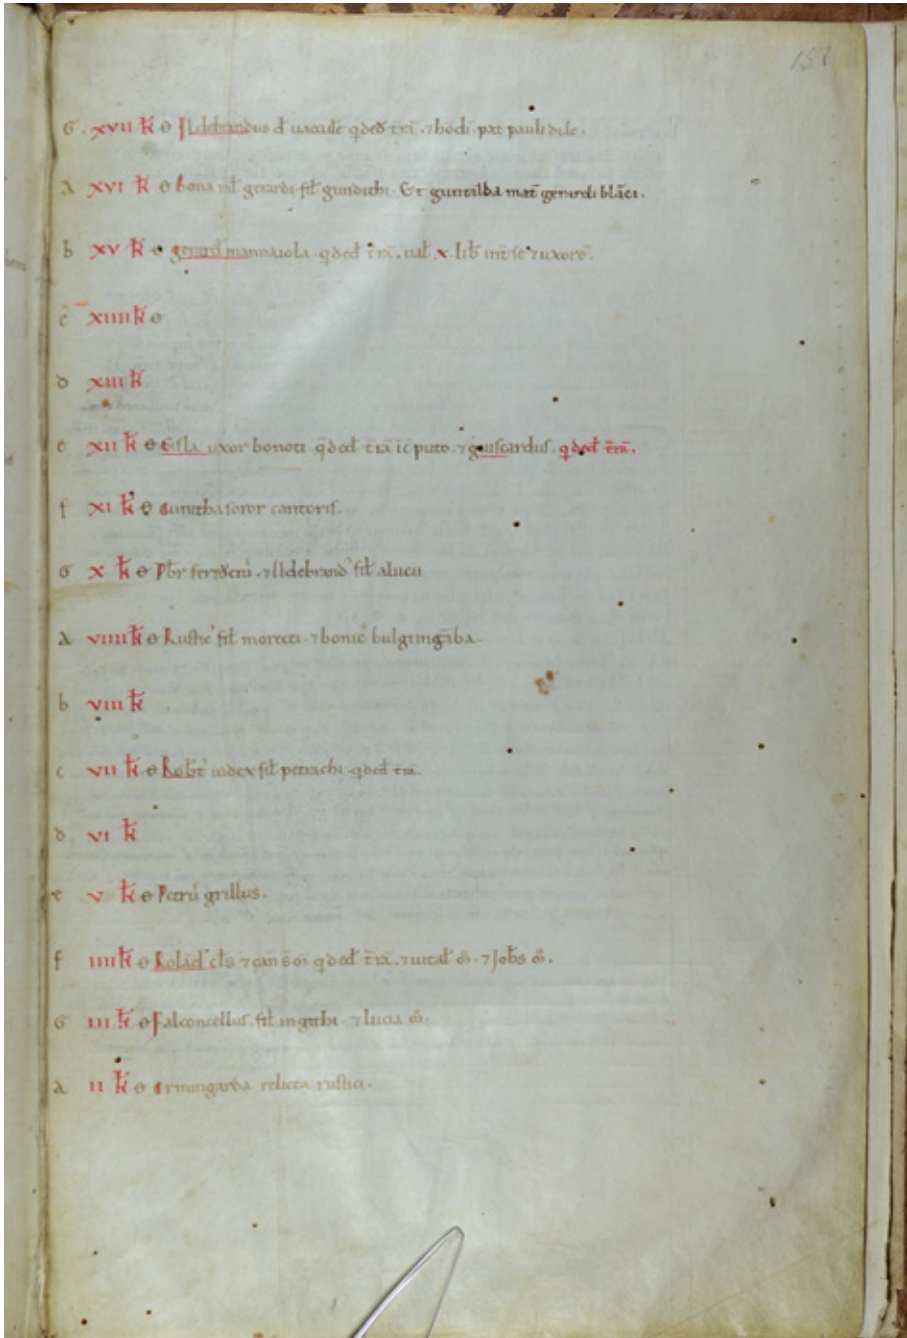 151
G xvii k̅ ɵ Ildebrandus đ uaccule q̅ded t̅r̅a̅ . ⁊ hōdi . pat̅ pauli dile .
A xvi k̅ ɵ bona ux̅ gerardi . fil̅ gundichi . Et guntilba mat̅ gerardi bla̅ci .
b xv k̅ ɵ gerard mannaiola . q̅ded t̅r̅a̅ . ual̅ x . lib̅ int̅ se ⁊ uxore̅ .
c xiiii k̅ ɵ
d xiii k̅
e xii k̅ ɵ Gisla uxor bonoti q̅ded t̅r̅a̅ ic̅ puto . ⁊ guiscardus . q̅ded t̅r̅a̅ .
f xi k̅ ɵ cunitba soror cantoris .
G x k̅ ɵ Pb̅r . ⁊ Ildebrand' fil̅ alucii
A viiii k̅ ɵ Rustic' fil̅ morecti . ⁊ bonic' bulgunga̅ba .
b viii k̅
c vii k̅ ɵ Rob̅t' iudex fil̅ petrichi . q̅ded t̅r̅a̅ .
d vi k̅
e v k̅ ɵ Petru̅ grillus .
f iiii k̅ ɵ Rola̅d' cl̅s ⁊ can̅ q̅ded t̅r̅a̅ . ⁊ uital̅ m̅ . ⁊ Joh̅s m̅ .
G iii k̅ ɵ Falconcellus . fil̅ ingithi . ⁊ lucia m̅ .
a ii k̅ ɵ ermingarda relicta rustici .